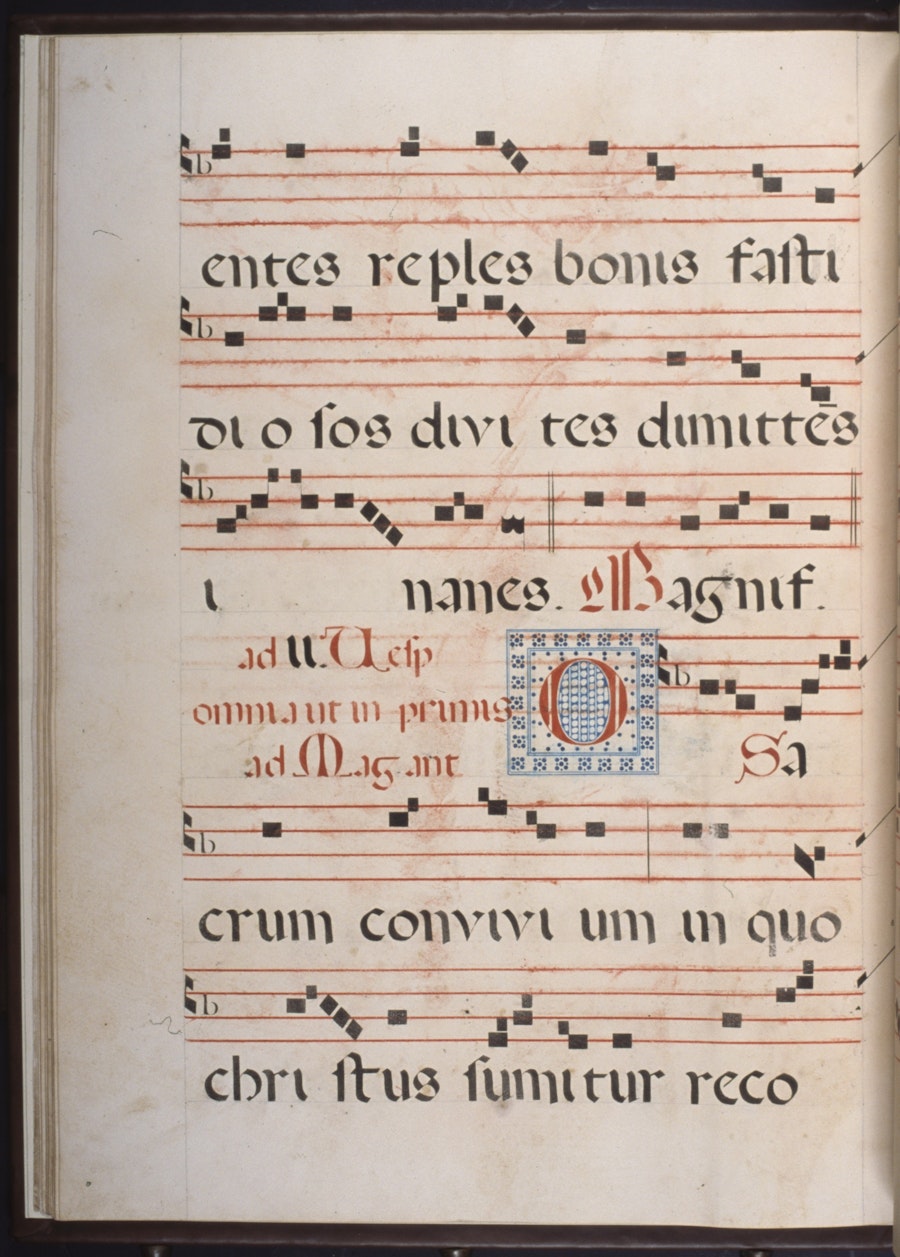 entes reples bonis fasti
di o sos divi tes dimittēs
i nanes. Magnif.
ad II. Vesp
omnia ut in primis
ad Mag ant
O Sa
crum convivi um in quo
chri stus sumitur reco